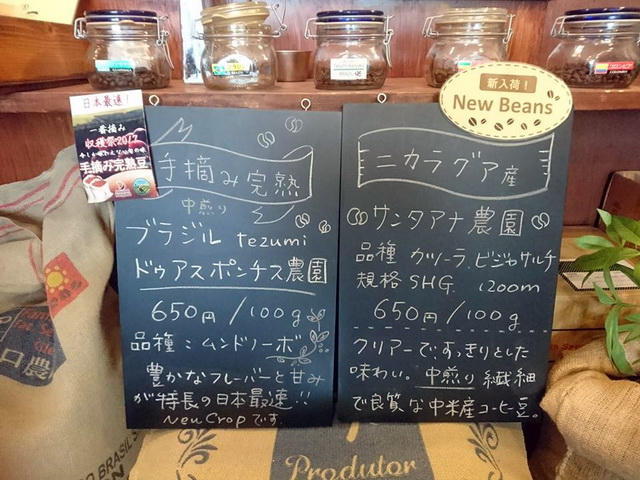 日本最速!
一番摘み
収穫祭2017
手摘み完熟豆
新入荷!
New Beans
手摘み完熟
中煎り
ブラジル tezumi
ドゥアスポンチス農園
650円/100g
品種:ムンドノーボ
豊かなフレーバーと甘み
が特長の日本最速!!
New Cropです。
ニカラグア産
サンタアナ農園
品種 カツーラ ビジャサルチ
規格 SHG 1200m
650円/100g
クリアーですっきりとした
味わい。中煎り 繊細
で良質な中米産コーヒー豆。
Produtor